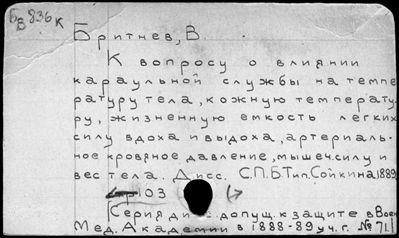 Бв 836к
Бритнев, В.
К вопросу о влиянии
караульной службы на темпе
ратуру тела, кожную температу.
ру, жизненную емкость легких
силу вдоха и выдоха, артериаль-
ное кровяное давление, мышеч. силу и
вес тела. Дисс. С.П.Б. Тип. Сойкина 1889
103
Серия дис. допущ. к защите в Воен
Мед. Академии в 1888-89 уч. г. № 71.